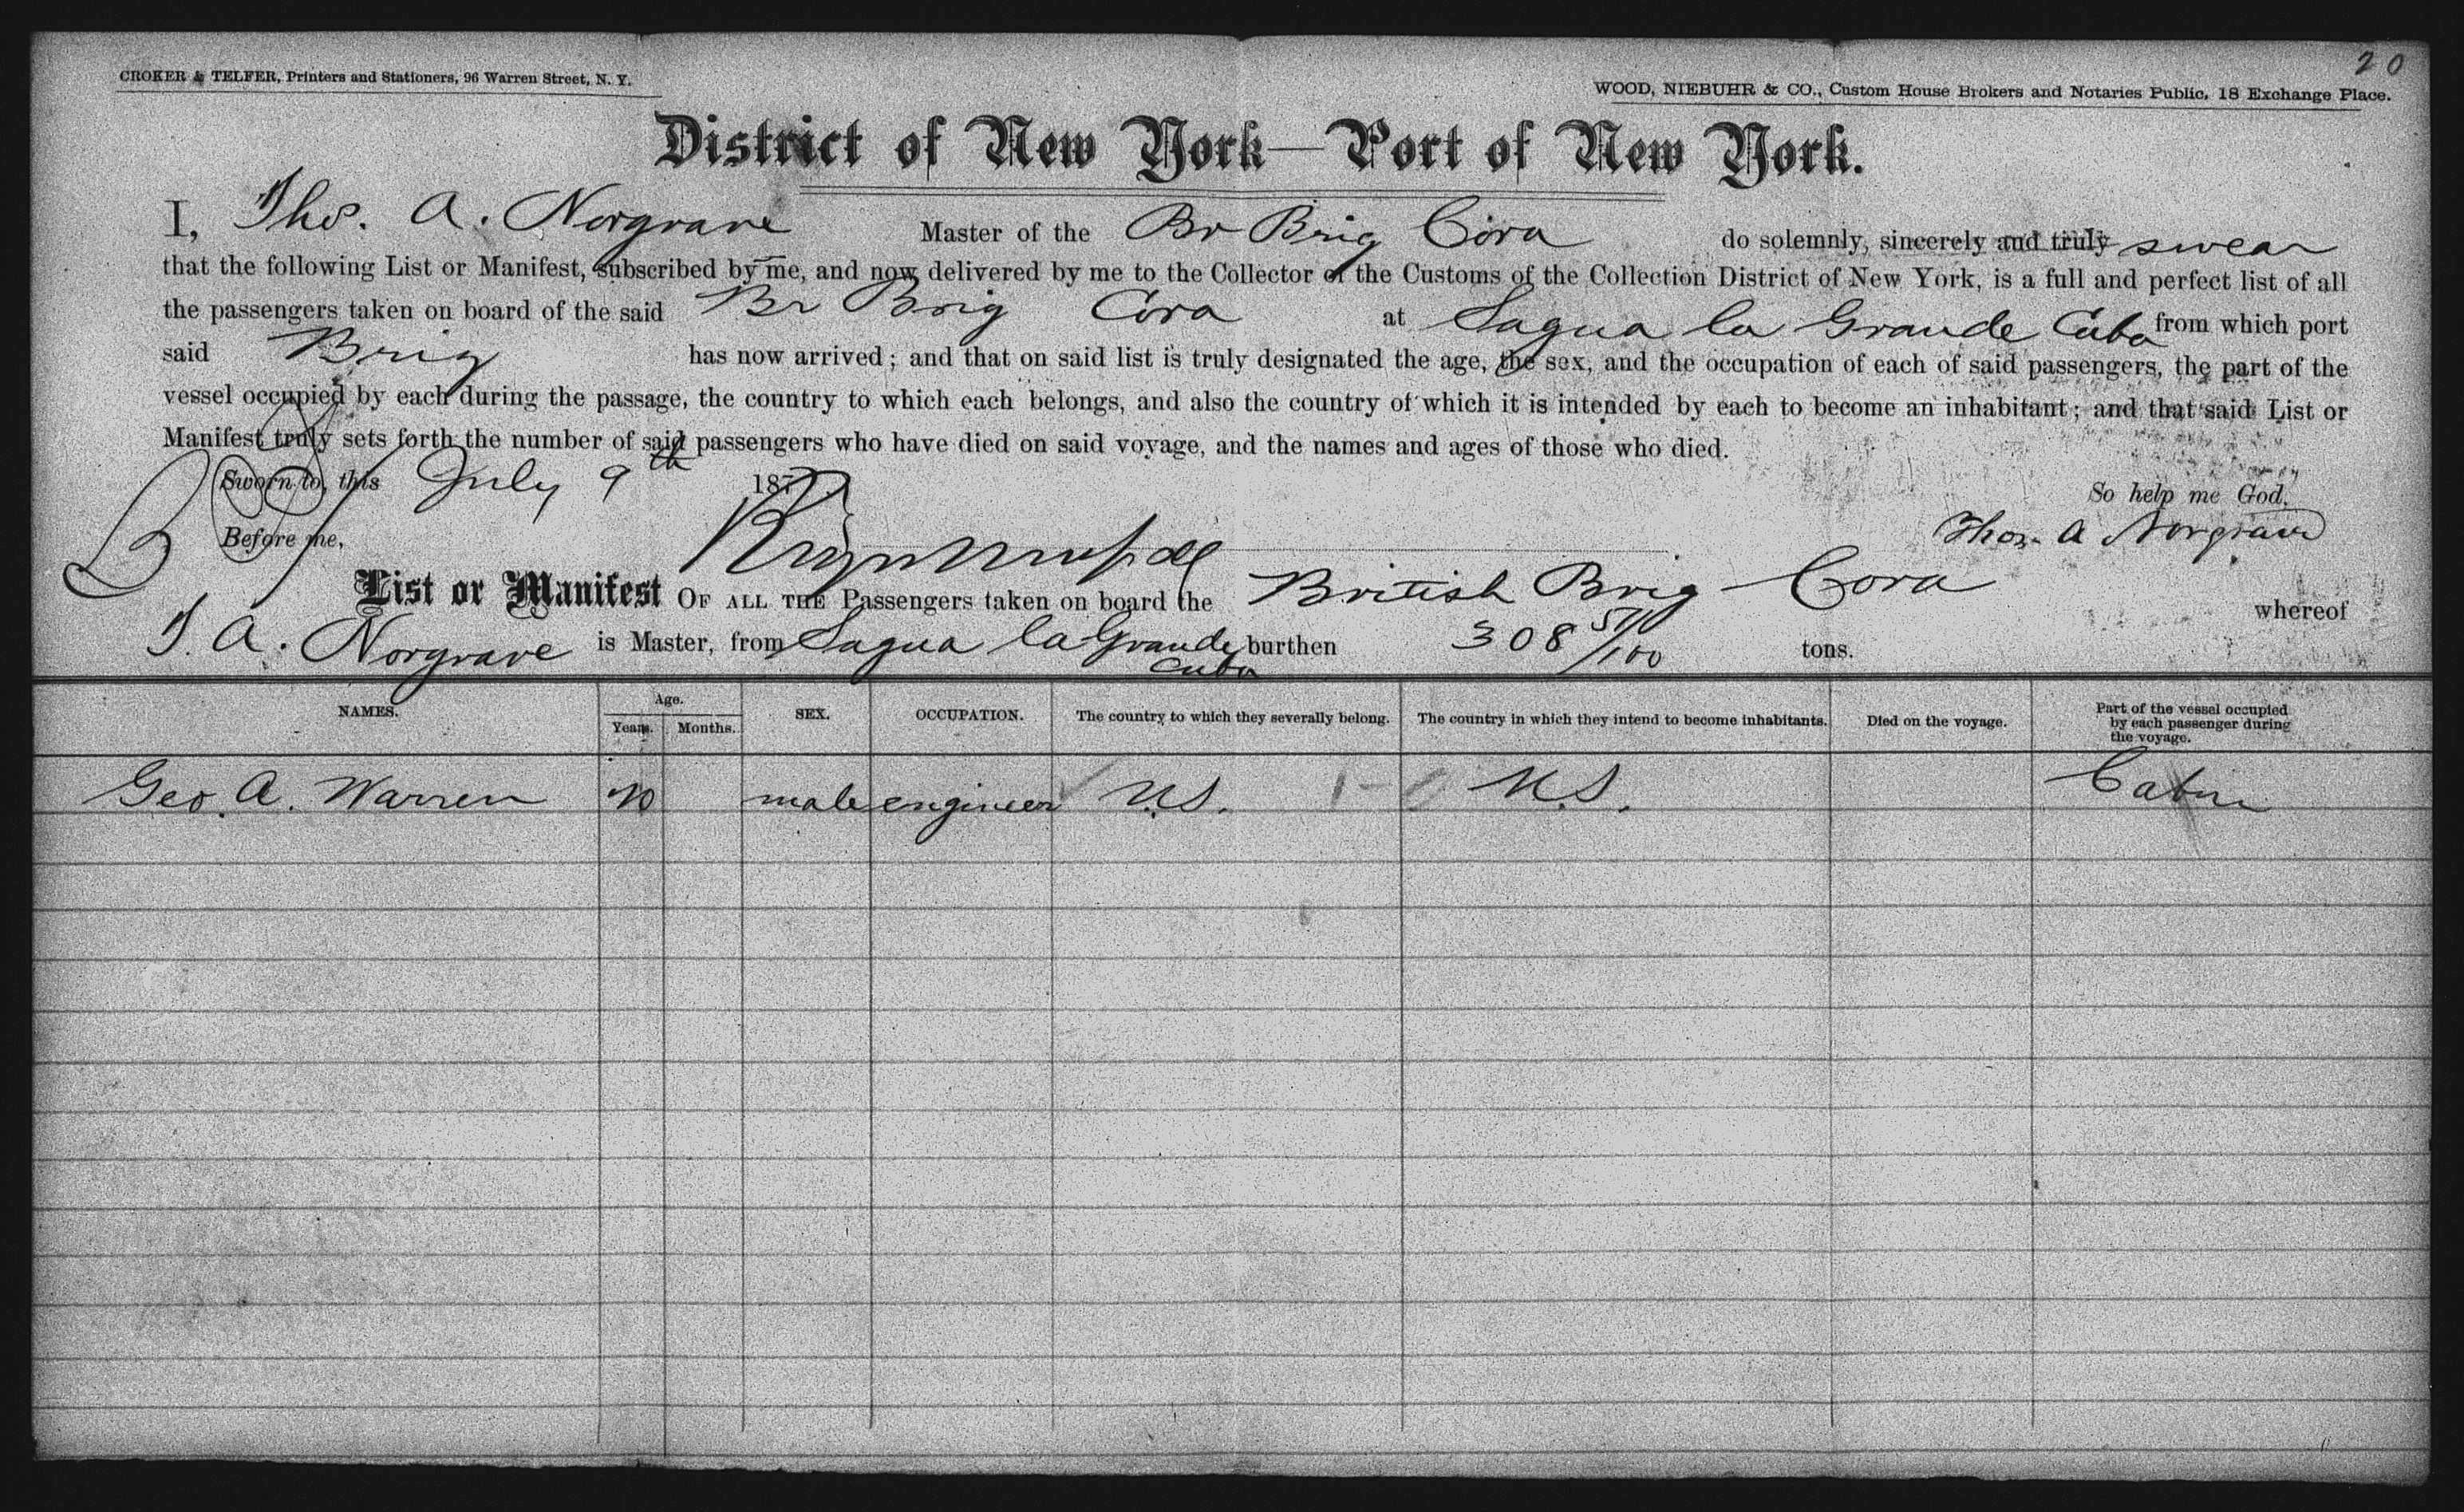 20
CROKER & TELFER, Printers and Stationers, 96 Warren Street, N. Y.
WOOD, NIEBUHR & CO., Custom House Brokers and Notaries Public, 18 Exchange Place.
District of New York—Port of New York.
I, Thos. A. Norgrave Master of the Br Brig Cora do solemnly, sincerely and truly swear
that the following List or Manifest, subscribed by me, and now delivered by me to the Collector of the Customs of the Collection District of New York, is a full and perfect list of all
the passengers taken on board of the said Br Brig Cora at Sagua la Grande Cuba from which port
said Brig has now arrived; and that on said list is truly designated the age, the sex, and the occupation of each of said passengers, the part of the
vessel occupied by each during the passage, the country to which each belongs, and also the country of which it is intended by each to become an inhabitant; and that said List or
Manifest truly sets forth the number of said passengers who have died on said voyage, and the names and ages of those who died.
Sworn to, this July 9th 187
So help me God.
Before me,
Thos. A Norgrave
List or Manifest OF ALL THE Passengers taken on board the British Brig Cora whereof
T. A. Norgrave is Master, from Sagua la Grande Cuba burthen 308 /100 tons.
NAMES. Age. Years. Months. SEX. OCCUPATION. The country to which they severally belong. The country in which they intend to become inhabitants. Died on the voyage. Part of the vessel occupied by each passenger during the voyage.
Geo. A. Warren male engineer U.S. U.S. Cabin